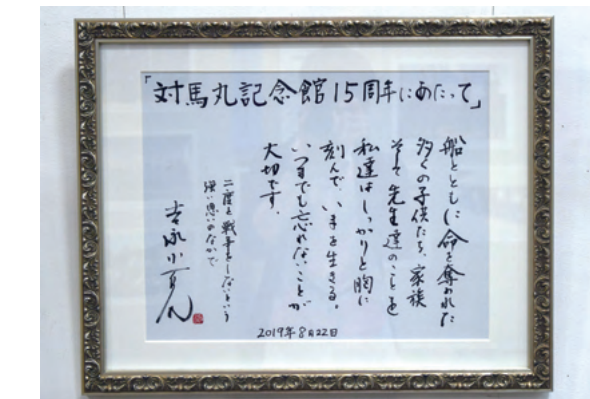 「対馬丸記念館15周年にあたって」
船とともに命を奪われた
多くの子供たち、家族
そして先生達のことを
私達はしっかりと胸に
刻んで、いまを生きる。
いつまでも忘れないことが
大切です。
二度と戦争をしないという
強い思いのなかで
吉永小百合
2019年8月22日